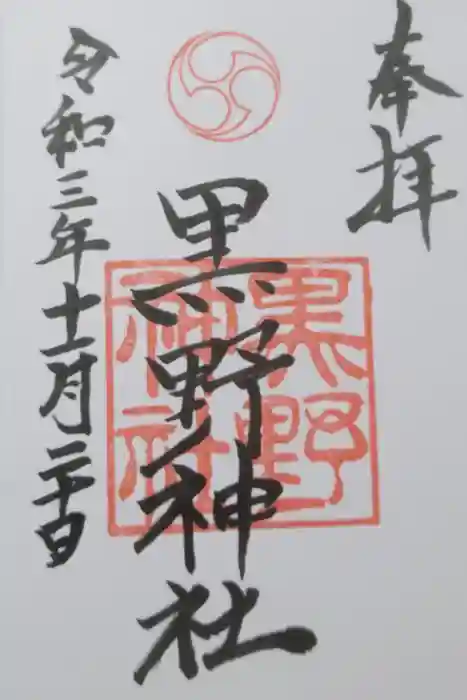 奉拝
黒野神社
黒野
神社
令和三年十一月二十日